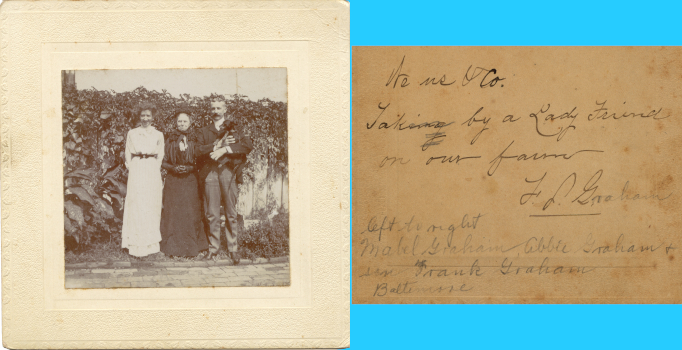 We us & Co.
Taking by a Lady Friend
on our farm
F S Graham
left to right
Mabel Graham, Abbie Graham +
son Frank Graham
Baltimore